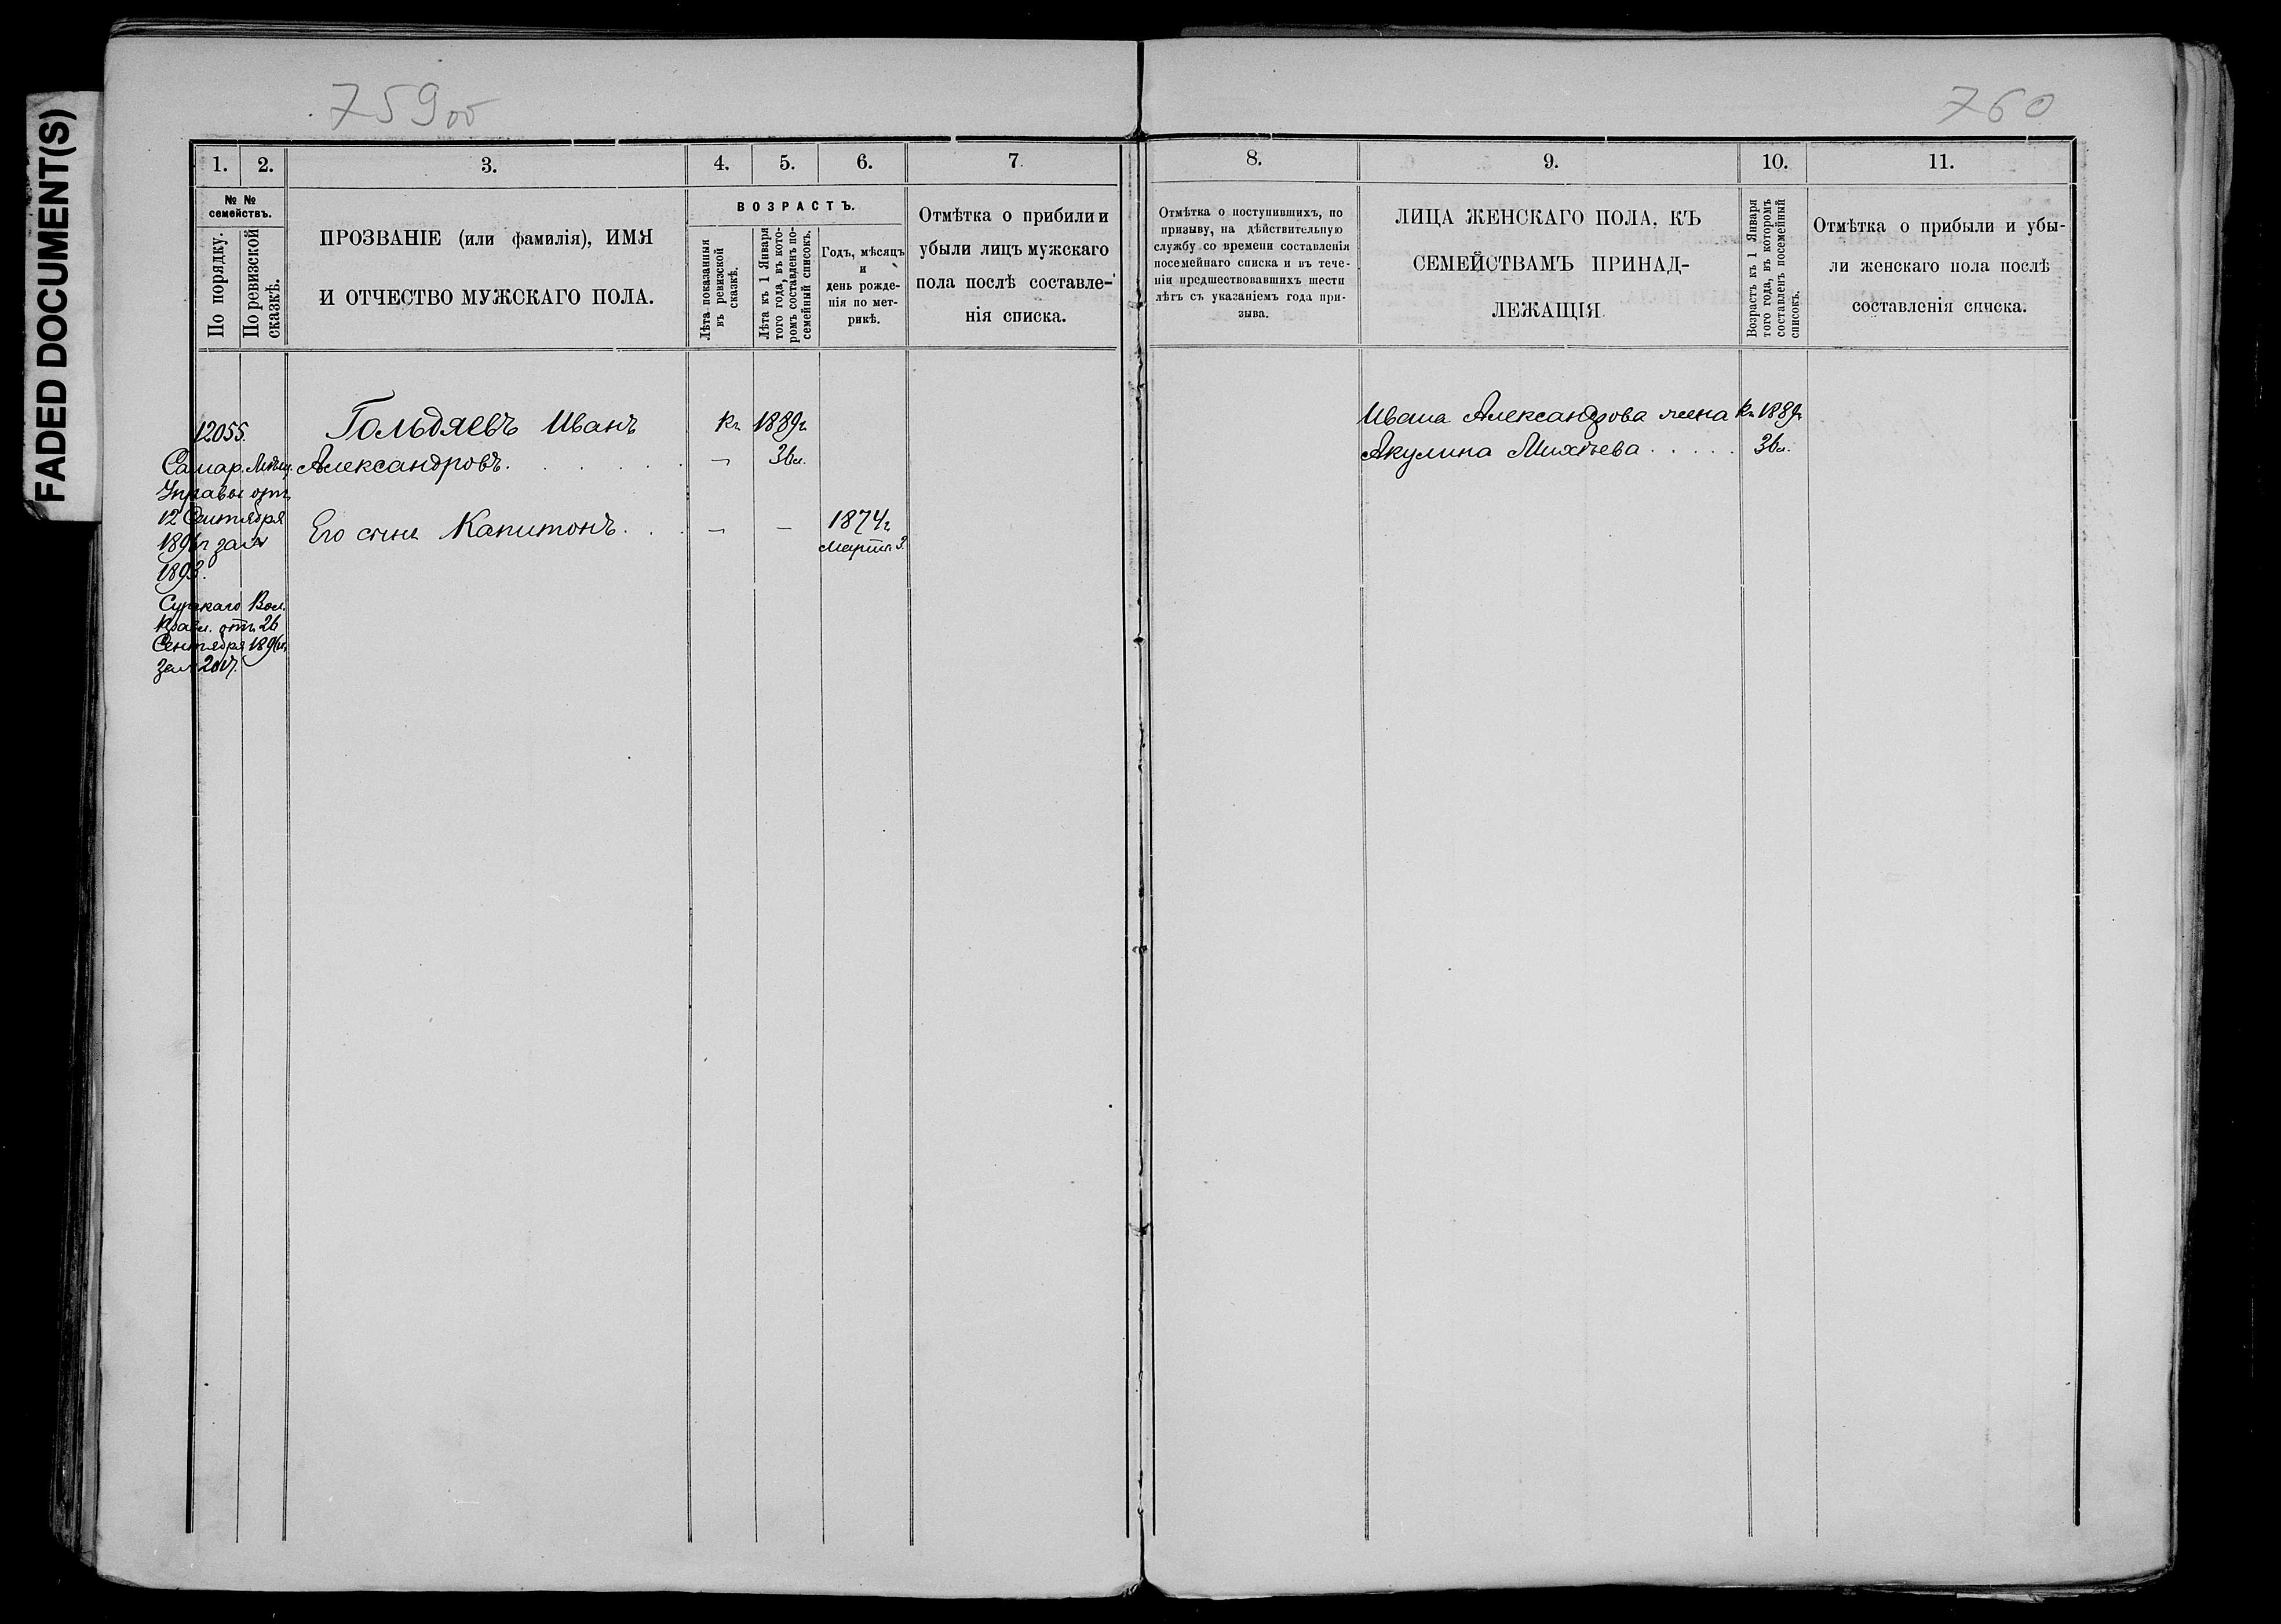 FADED DOCUMENT(S)
759об
760
1. 2. 3. 4. 5. 6. 7.
№ № семействъ.
По порядку.
По ревизской сказкѣ.
ПРОЗВАНІЕ (или фамилія), ИМЯ
И ОТЧЕСТВО МУЖСКАГО ПОЛА.
ВОЗРАСТЪ.
Лѣта показанныя
въ ревизской
сказкѣ.
Лѣта къ 1 Января
того года, въ кото-
ромъ составленъ по-
семейный списокъ.
Годъ, мѣсяцъ
и
день рожде-
нія по мет-
рикѣ.
Отмѣтка о прибыли и
убыли лицъ мужскаго
пола послѣ составле-
нія списка.
12055. Гольдяевъ Иванъ къ 1889г
Самар. Мѣщ. Александровъ. — 36л.
Управы отъ
12 Сентября Его сынъ Капитонъ. — — 1874г
Марта 3.
1893.
Сурскаго Вол.
Правл. отъ 26
Сентября 189
за № 2017.
8. 9. 10. 11.
Отмѣтка о поступившихъ, по
призыву, на дѣйствительную
службу со времени составленія
посемейнаго списка и въ тече-
ніи предшествовавшихъ шести
лѣтъ съ указаніемъ года при-
зыва.
ЛИЦА ЖЕНСКАГО ПОЛА, КЪ
СЕМЕЙСТВАМЪ ПРИНАД-
ЛЕЖАЩІЯ.
Возрастъ къ 1 Января
того года, въ которомъ
составленъ посемейный
списокъ.
Отмѣтка о прибыли и убы-
ли женскаго пола послѣ
составленія списка.
Ивана Александрова жена къ 1889г
Акулина Михѣева . . . . . 36л.